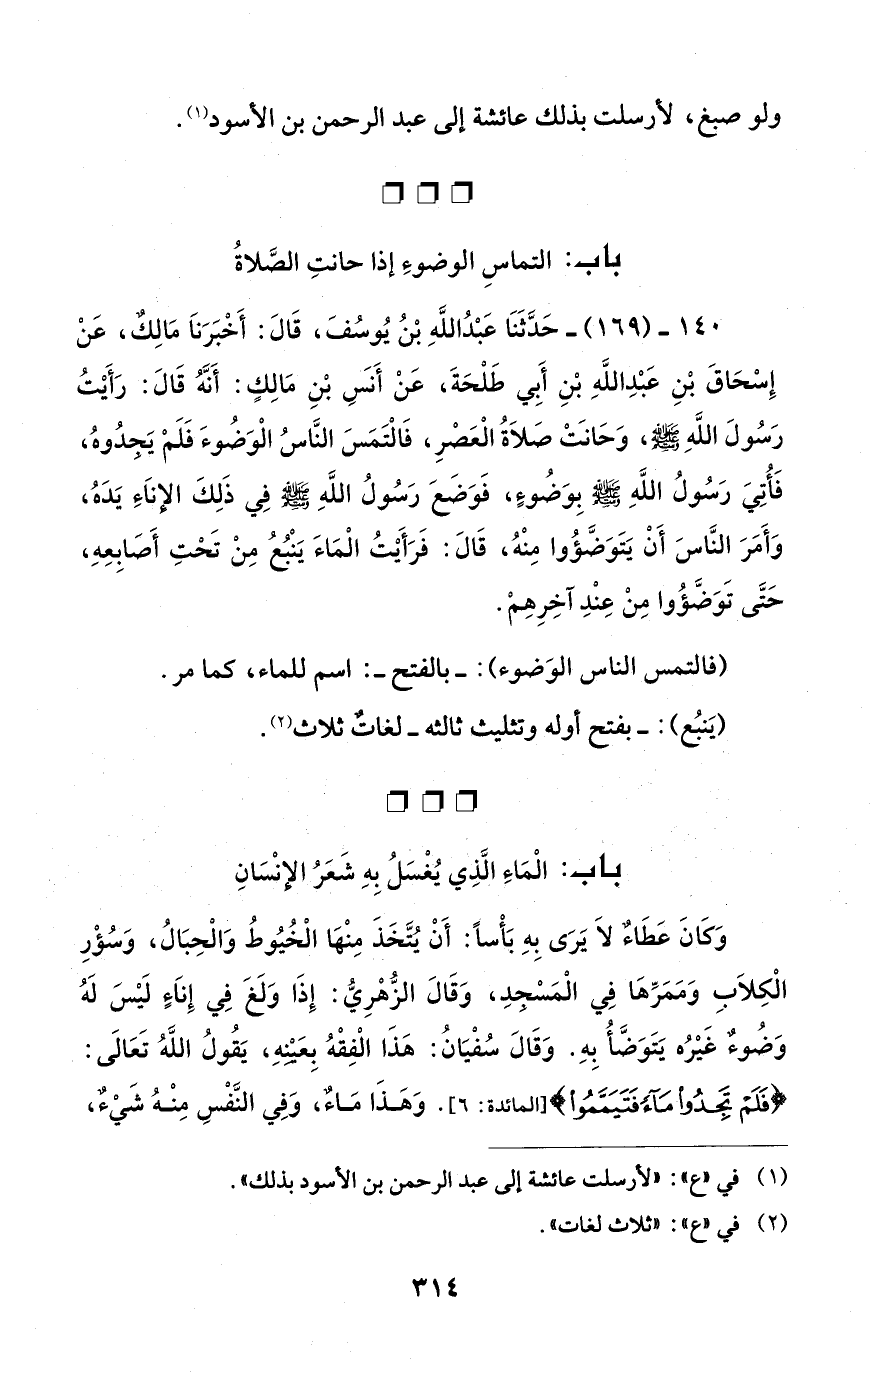 ولو صبغ، لأرسلت بذلك عائشة إلى عبد الرحمن بن الأسود(١).
باب: التماسِ الوضوءِ إذا حانتِ الصَّلاةُ
١٤٠ ـ (١٦٩) ـ حَدَّثَنَا عَبْدُاللَّهِ بْنُ يُوسُفَ، قَالَ: أَخْبَرَنَا مَالِكٌ، عَنْ
إِسْحَاقَ بْنِ عَبْدِاللَّهِ بْنِ أَبِي طَلْحَةَ، عَنْ أَنَسِ بْنِ مَالِكٍ: أَنَّهُ قَالَ: رَأَيْتُ
رَسُولَ اللَّهِ ﷺ، وَحَانَتْ صَلاَةُ الْعَصْرِ، فَالْتَمَسَ النَّاسُ الْوَضُوءَ فَلَمْ يَجِدُوهُ،
فَأُتِيَ رَسُولُ اللَّهِ ﷺ بِوَضُوءٍ، فَوَضَعَ رَسُولُ اللَّهِ ﷺ فِي ذَلِكَ الإِنَاءِ يَدَهُ،
وَأَمَرَ النَّاسَ أَنْ يَتَوَضَّؤُوا مِنْهُ، قَالَ: فَرَأَيْتُ الْمَاءَ يَنْبُعُ مِنْ تَحْتِ أَصَابِعِهِ،
حَتَّى تَوَضَّؤُوا مِنْ عِنْدِ آخِرِهِمْ.
(فالتمس الناس الوَضوء): ـ بالفتح ـ: اسم للماء، كما مر.
(يَنبُع): ـ بفتح أوله وتثليث ثالثه ـ لغاتٌ ثلاث(٢).
باب: الْمَاءِ الَّذِي يُغْسَلُ بِهِ شَعَرُ الإِنْسَانِ
وَكَانَ عَطَاءٌ لاَ يَرَى بِهِ بَأْساً: أَنْ يُتَّخَذَ مِنْهَا الْخُيُوطُ وَالْحِبَالُ، وَسُؤْرِ
الْكِلاَبِ وَمَمَرِّهَا فِي الْمَسْجِدِ، وَقَالَ الزُّهْرِيُّ: إِذَا وَلَغَ فِي إِنَاءٍ لَيْسَ لَهُ
وَضُوءٌ غَيْرُه يَتَوَضَّأُ بِهِ. وَقَالَ سُفْيَانُ: هَذَا الْفِقْهُ بِعَيْنِهِ، يَقُولُ اللَّهُ تَعَالَى:
﴿فَلَمْ تَجِدُواْ مَآءً فَتَيَمَّمُواْ﴾ [المائدة: ٦]. وَهَذَا مَاءٌ، وَفِي النَّفْسِ مِنْهُ شَيْءٌ،
(١) في «ع»: «لأرسلت عائشة إلى عبد الرحمن بن الأسود بذلك».
(٢) في «ع»: «ثلاث لغات».
٣١٤